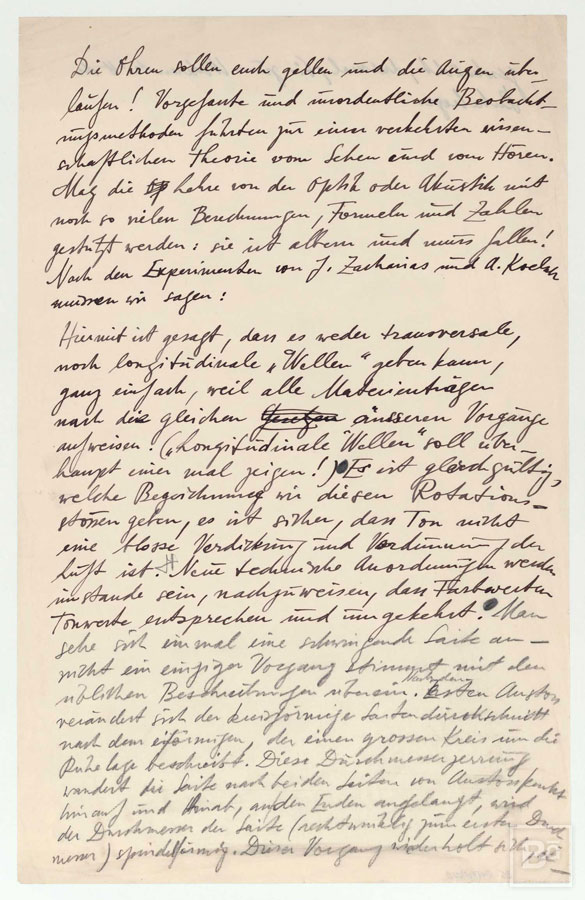 Die Ohren sollen euch gellen und die Augen über-
laufen! Vorgefasste und unordentliche Beobacht-
ungsmethoden führten zur einer verkehrten wissen-
schaftlichen Theorie vom Sehen und vom Hören.
Mag die Lehre von der Optik oder Akustik mit
noch so vielen Berechnungen, Formeln und Zahlen
gestützt werden: sie ist albern und muss fallen!
Nach den Experimenten von J. Zacharias und A.
müssen wir sagen:
Hiermit ist gesagt, dass es weder transversale,
noch longitudinale „Wellen“ geben kann,
ganz einfach, weil alle Materienträger
nach die gleichen äusseren Vorgänge
aufweisen. („Longitudinale Wellen“ soll über-
haupt einer mal zeigen!) Es ist gleichgültig,
welche Bezeichnung wir diesen Rotations-
stössen geben, es ist sicher, dass Ton nicht
eine blosse Verdickung und Verdünnung der
Luft ist. Neue technische Anordnungen werden
imstande sein, nachzuweisen, dass Farbwerten
Tonwerte entsprechen und umgekehrt. Man
sehe sich einmal eine schwingende Saite an —
nicht ein einziger Vorgang stimmt mit den
üblichen Beschreibungen überein. Nach dem ersten Anstoss
verändert sich der kreisförmige Saitendurchschnitt
nach dem eiförmigen, der einen grossen Kreis um die
Ruhelage beschreibt. Diese Durchmesserzerrung
wandert die Saite nach beiden Seiten vom Anstosspunkt
hinauf und hinab, an den Enden angelangt, wird
der Durchmesser der Saite (rechtwinklig zum ersten Durch
messer) spindelförmig. Dieser Vorgang wiederholt sich